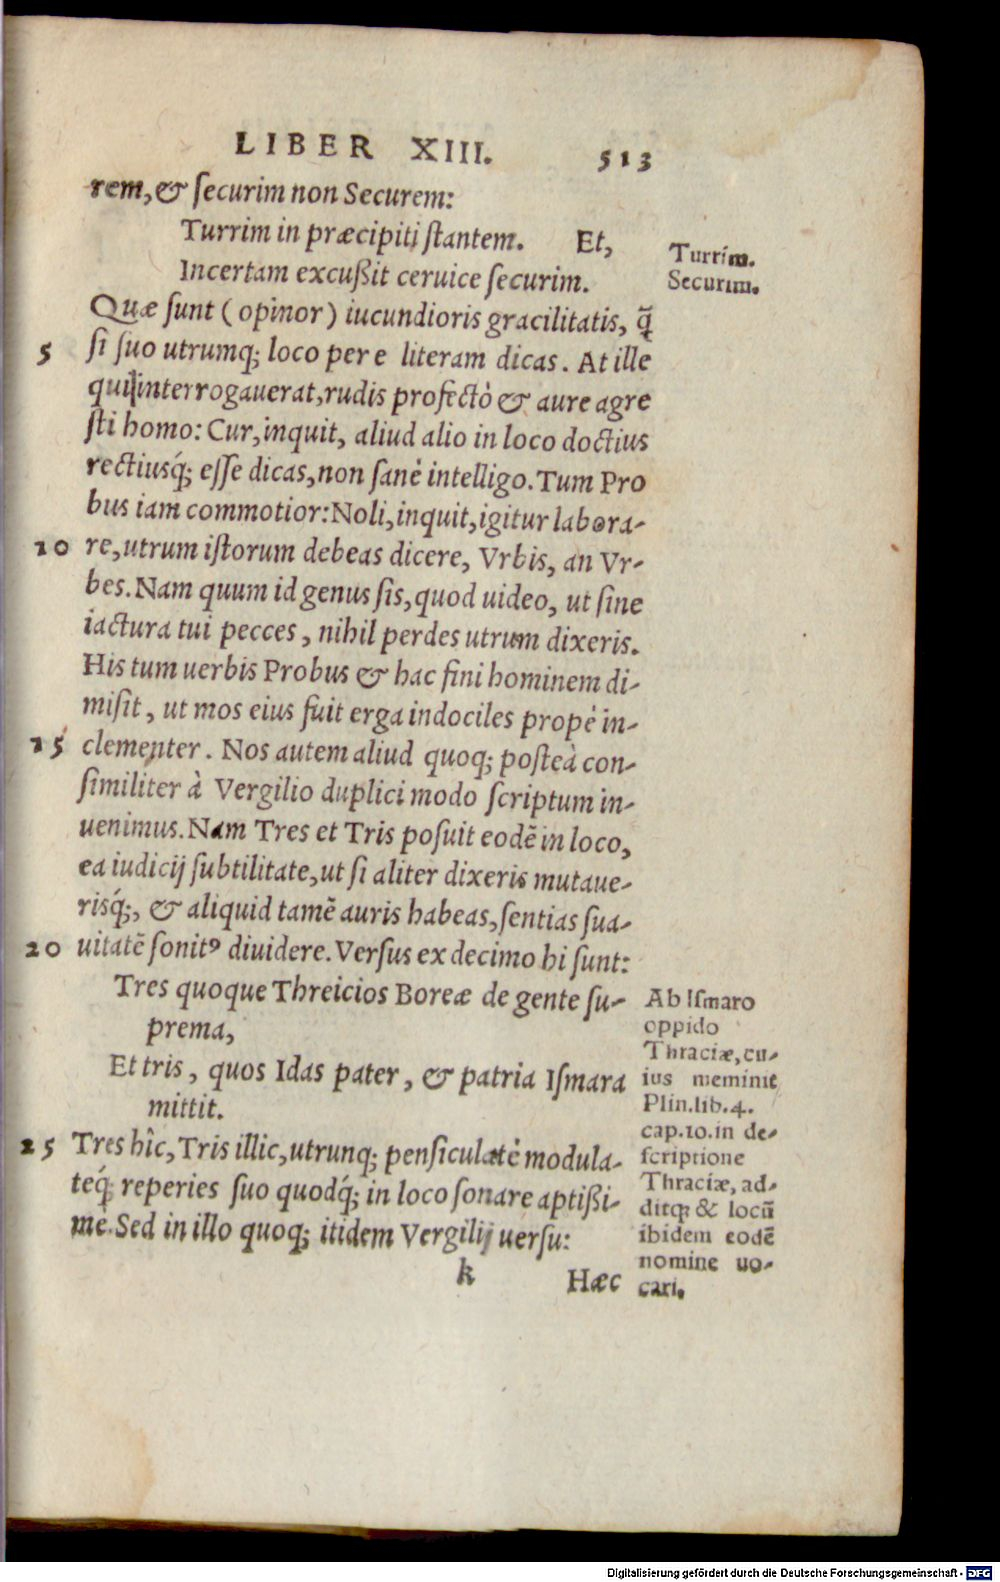 LIBER XIII. 513
rem, & ſecurim non Securem:
Turrim in præcipiti ſtantem. Et,
Incertam excuſsit ceruice ſecurim.
Turrim.
Securim.
Quæ ſunt (opinor) iucundioris gracilitatis, q̃
5 ſi ſuo utrumq; loco per e literam dicas. At ille
qui interrogauerat, rudis profectò & aure agre
ſti homo: Cur, inquit, aliud alio in loco doctius
rectiusq́; eſſe dicas, non ſanè intelligo. Tum Pro
bus iam commotior: Noli, inquit, igitur labora-
10 re, utrum iſtorum debeas dicere, Vrbis, an Vr-
bes. Nam quum id genus ſis, quod uideo, ut ſine
iactura tui pecces, nihil perdes utrum dixeris.
His tum uerbis Probus & hac fini hominem di-
miſit, ut mos eius fuit erga indociles propè in-
15 clementer. Nos autem aliud quoq; poſteà con-
ſimiliter à Vergilio duplici modo ſcriptum in-
uenimus. Nam Tres et Tris poſuit eodẽ in loco,
ea iudicij ſubtilitate, ut ſi aliter dixeris mutaue-
risq́;, & aliquid tamẽ auris habeas, ſentias ſua-
20 uitatẽ ſonitꝰ diuidere. Verſus ex decimo hi ſunt:
Tres quoque Threicios Boreæ de gente ſu-
prema,
Et tris, quos Idas pater, & patria Iſmara
mittit.
25 Tres hîc, Tris illic, utrunq; penſiculatè modula-
teq́; reperies ſuo quodq́; in loco ſonare aptiſsi-
mè. Sed in illo quoq; itidem Vergilij uerſu:
k Hæc
Ab Iſmaro
oppido
Thraciæ, cu-
ius meminit
Plin. lib. 4.
cap. 10. in de-
ſcriptione
Thraciæ, ad-
ditq; & locũ
ibidem eodẽ
nomine uo-
cari.
Digitalisierung gefördert durch die Deutsche Forschungsgemeinschaft - DFG